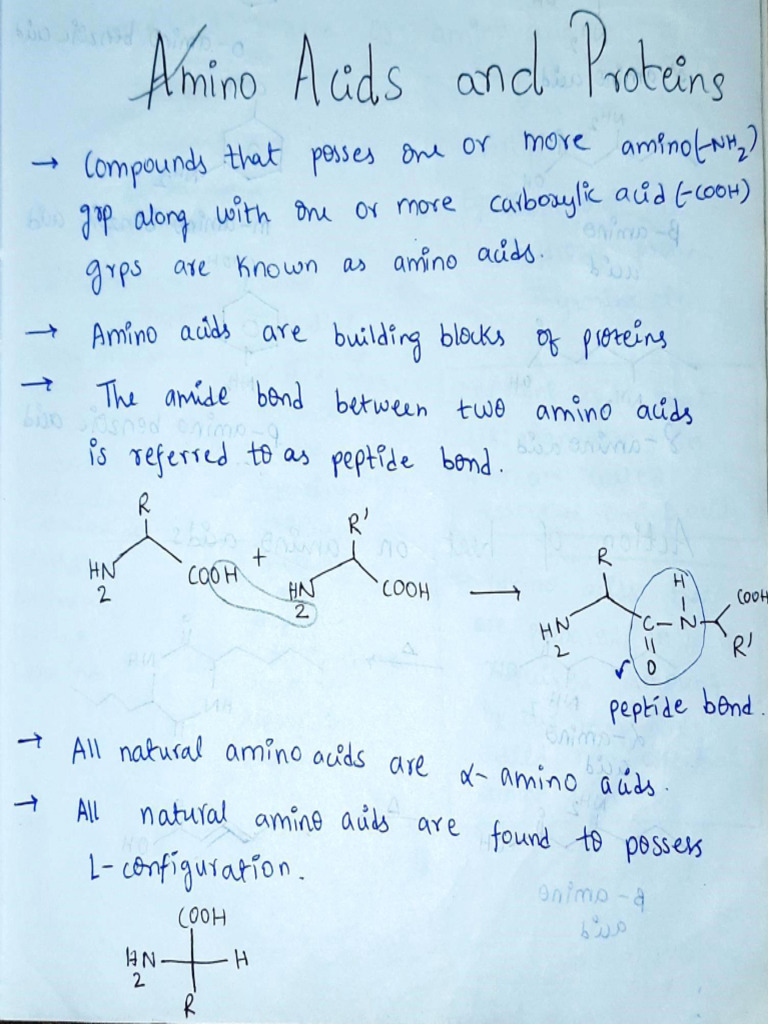 Amino Acids and Proteins
→ Compounds that posses one or more amino(-NH2)
grp along with one or more carboxylic acid (-COOH)
grps are known as amino acids.
→ Amino acids are building blocks of proteins
→ The amide bond between two amino acids
is referred to as peptide bond.
R
H2N COOH + R' H2N COOH → R H2N C-N H O COOH R'
peptide bond.
→ All natural amino acids are α- amino acids.
→ All natural amino acids are found to possess
L-configuration.
COOH
H2N H
R